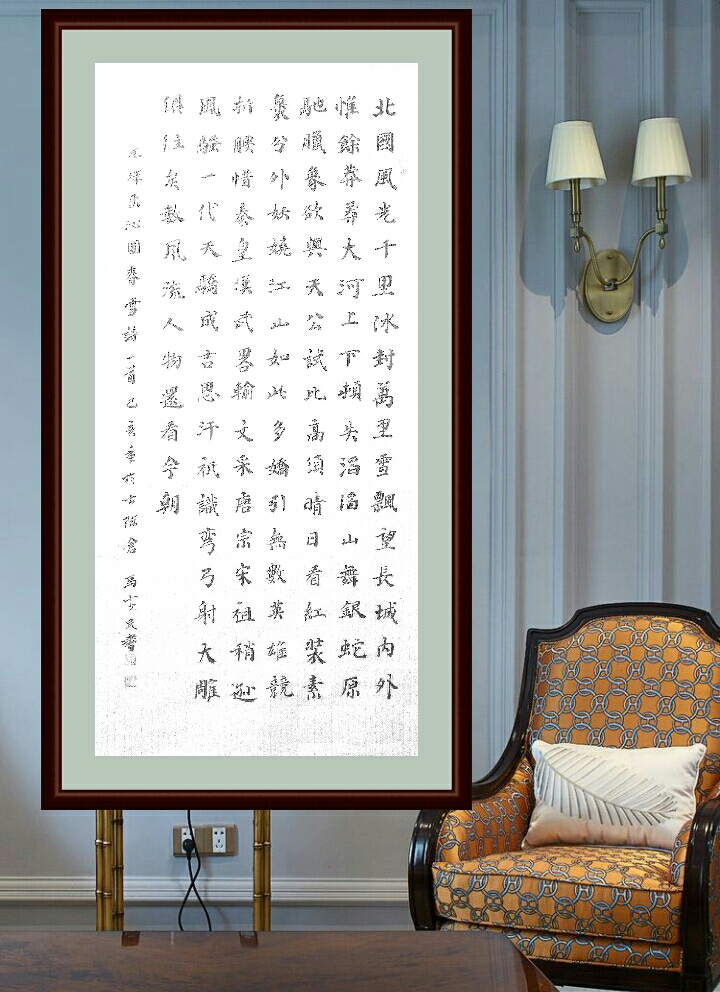 北國風光千里冰封萬里雪飄望長城内外
惟餘莽莽大河上下頓失滔滔山舞銀蛇原
馳臘象欲與天公試比高須晴日看紅裝素
裹分外妖嬈江山如此多嬌引無數英雄競
折腰惜秦皇漢武畧輸文采唐宗宋祖稍遜
風騷一代天驕成吉思汗祇識彎弓射大雕
俱往矣數風流人物還看今朝
毛澤東沁園春雪詩一首己亥於古陳倉 馬書